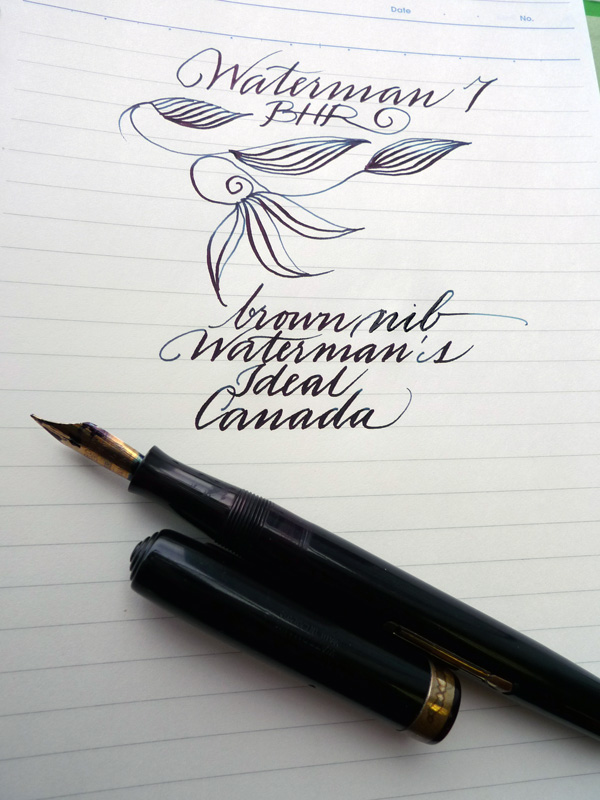 Date . .
No.
Waterman 7
BHR
brown nib
Waterman's
Ideal
Canada